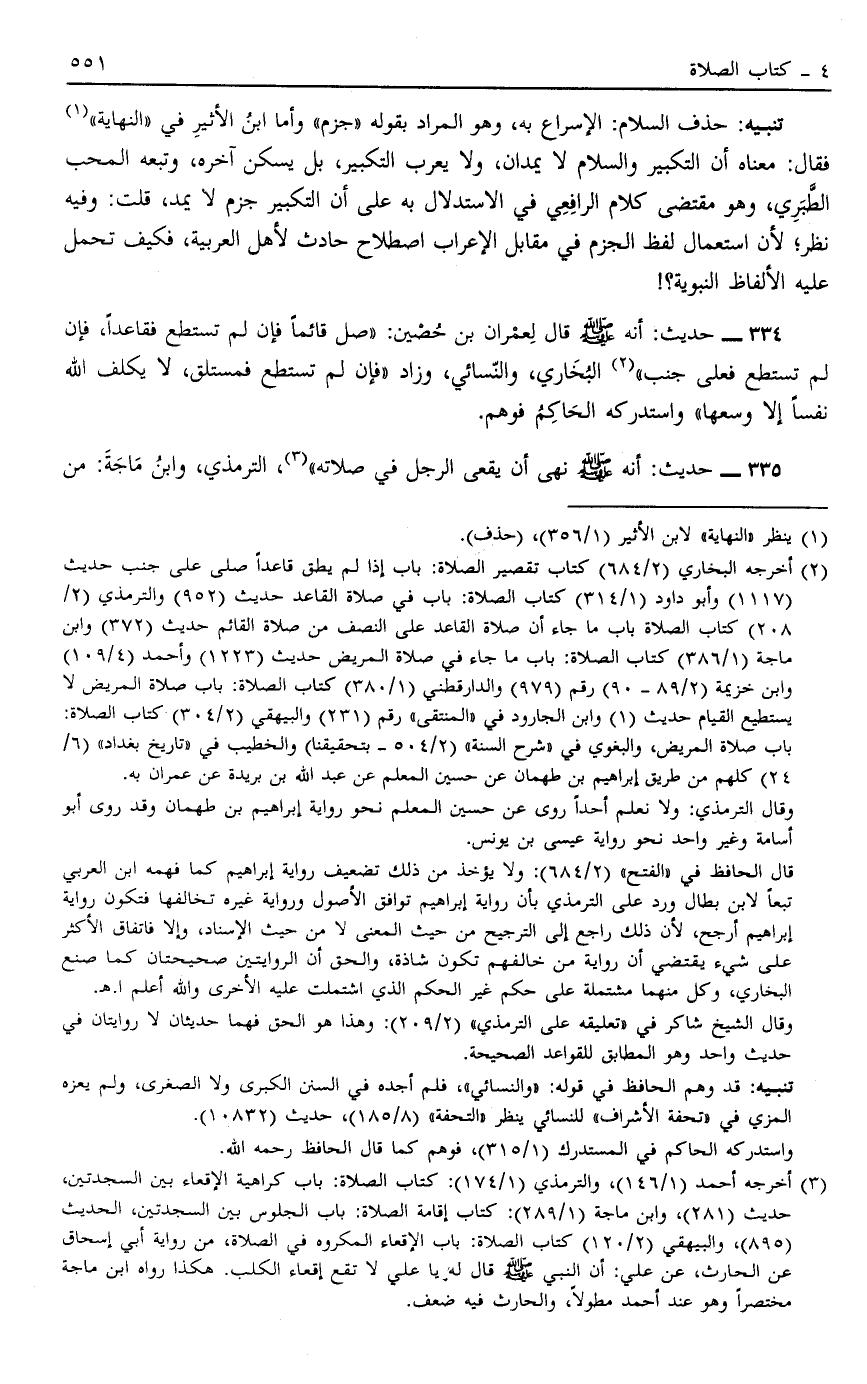 ٤ - كتاب الصلاة ٥٥١
تنبيه: حذف السلام: الإسراع به، وهو المراد بقوله «جزم» وأما ابنُ الأثيرِ في «النهاية»(١)
فقال: معناه أن التكبير والسلام لا يمدان، ولا يعرب التكبير، بل يسكن آخره، وتبعه المحب
الطَّبَرِي، وهو مقتضى كلام الرافِعِي في الاستدلال به على أن التكبير جزم لا يمد، قلت: وفيه
نظر؛ لأن استعمال لفظ الجزم في مقابل الإعراب اصطلاح حادث لأهل العربية، فكيف تحمل
عليه الألفاظ النبوية؟!
٣٣٤ ـــ حديث: أنه ﷺ قال لِعمْران بن حُصْين: «صل قائماً فإن لم تستطع فقاعداً، فإن
لم تستطع فعلى جنب»(٢) البُخَاري، والنّسائي، وزاد «فإن لم تستطع فمستلق، لا يكلف الله
نفساً إلا وسعها» واستدركه الحَاكِمُ فوهم.
٣٣٥ ـــ حديث: أنه ﷺ نهى أن يقعى الرجل في صلاته»(٣)، الترمذي، وابنُ مَاجَةَ: من
(١) ينظر «النهاية» لابن الأثير (٣٥٦/١)، (حذف).
(٢) أخرجه البخاري (٦٨٤/٢) كتاب تقصير الصلاة: باب إذا لم يطق قاعداً صلى على جنب حديث
(١١١٧) وأبو داود (٣١٤/١) كتاب الصلاة: باب في صلاة القاعد حديث (٩٥٢) والترمذي (٢/
٢٠٨) كتاب الصلاة باب ما جاء أن صلاة القاعد على النصف من صلاة القائم حديث (٣٧٢) وابن
ماجة (٣٨٦/١) كتاب الصلاة: باب ما جاء في صلاة المريض حديث (١٢٢٣) وأحمد (١٠٩/٤)
وابن خزيمة (٨٩/٢ - ٩٠) رقم (٩٧٩) والدارقطني (٣٨٠/١) كتاب الصلاة: باب صلاة المريض لا
يستطيع القيام حديث (١) وابن الجارود في «المنتقى» رقم (٢٣١) والبيهقي (٣٠٤/٢) كتاب الصلاة:
باب صلاة المريض، والبغوي في «شرح السنة» (٥٠٤/٢ - بتحقيقنا) والخطيب في «تاريخ بغداد» (٦/
٢٤) كلهم من طريق إبراهيم بن طهمان عن حسين المعلم عن عبد الله بن بريدة عن عمران به.
وقال الترمذي: ولا نعلم أحداً روى عن حسين المعلم نحو رواية إبراهيم بن طهمان وقد روى أبو
أسامة وغير واحد نحو رواية عيسى بن يونس.
قال الحافظ في «الفتح» (٦٨٤/٢): ولا يؤخذ من ذلك تضعيف رواية إبراهيم كما فهمه ابن العربي
تبعاً لابن بطال ورد على الترمذي بأن رواية إبراهيم توافق الأصول ورواية غيره تخالفها فتكون رواية
إبراهيم أرجح، لأن ذلك راجع إلى الترجيح من حيث المعنى لا من حيث الإسناد، وإلا فاتفاق الأكثر
على شيء يقتضي أن رواية من خالفهم تكون شاذة، والحق أن الروايتين صحيحتان كما صنع
البخاري، وكل منهما مشتملة على حكم غير الحكم الذي اشتملت عليه الأخرى والله أعلم ا.هـ.
وقال الشيخ شاكر في «تعليقه على الترمذي» (٢٠٩/٢): وهذا هو الحق فهما حديثان لا روايتان في
حديث واحد وهو المطابق للقواعد الصحيحة.
تنبيه: قد وهم الحافظ في قوله: «والنسائي»، فلم أجده في السنن الكبرى ولا الصغرى، ولم يعزه
المزي في «تحفة الأشراف» للنسائي ينظر «التحفة» (١٨٥/٨)، حديث (١٠٨٣٢).
واستدركه الحاكم في المستدرك (٣١٥/١)، فوهم كما قال الحافظ رحمه الله.
(٣) أخرجه أحمد (١٤٦/١)، والترمذي (١٧٤/١): كتاب الصلاة: باب كراهية الإقعاء بين السجدتين،
حديث (٢٨١)، وابن ماجة (٢٨٩/١): كتاب إقامة الصلاة: باب الجلوس بين السجدتين، الحديث
(٨٩٥)، والبيهقي (١٢٠/٢) كتاب الصلاة: باب الإقعاء المكروه في الصلاة، من رواية أبي إسحاق
عن الحارث، عن علي: أن النبي ﷺ قال له يا علي لا تقع إقعاء الكلب. هكذا رواه ابن ماجة
مختصراً وهو عند أحمد مطولاً، والحارث فيه ضعف.